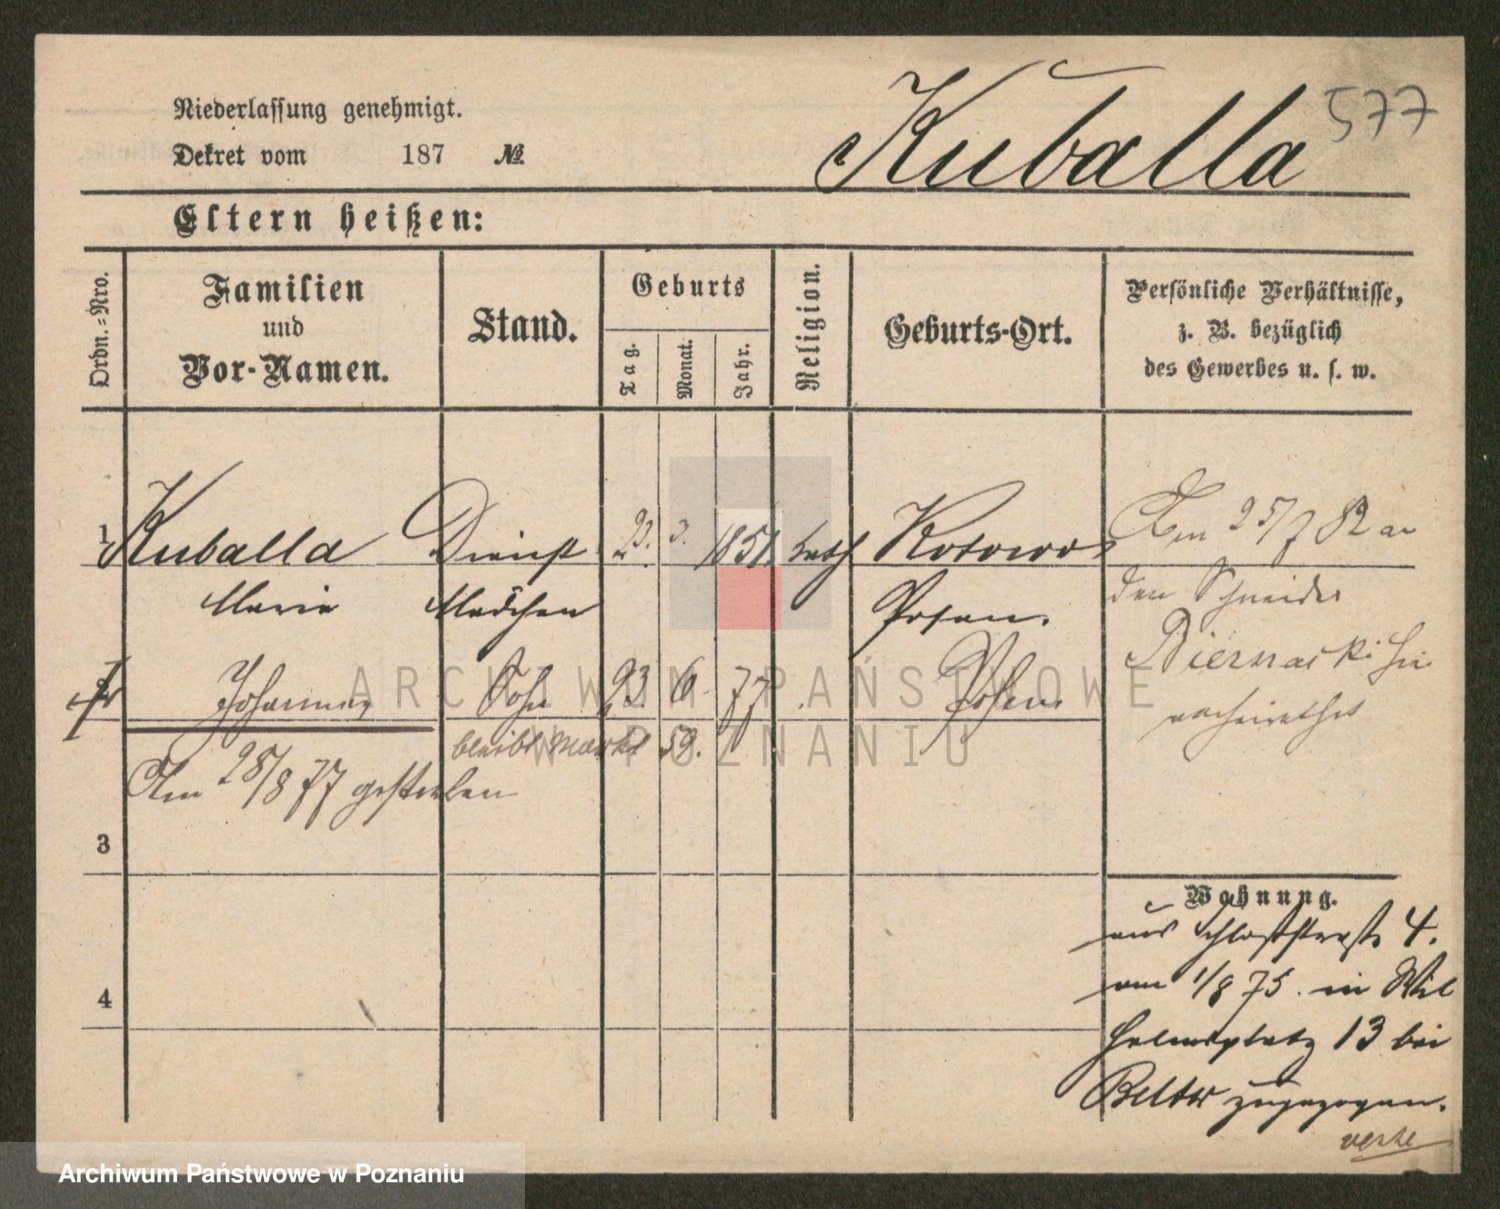 Niederlassung genehmigt.
Dekret vom 187 №
Kuballa 577
Eltern heißen:
Ordn.-Nro.
Familien
und
Vor-Namen.
Stand.
Geburts
Tag.
Monat.
Jahr.
Religion.
Geburts-Ort.
Persönliche Verhältnisse,
z. B. bezüglich
des Gewerbes u. s. w.
1 Kuballa Dienst 23. 3. 1851 kath Kotowo
Marie Mädchen Posen.
Am 25/7 82 an
den Schneider
Biernacki hie
verheirathet
Johannes Sohn 23 6. 77 Posen
bleibt Markt 59.
Am 28/8 77 gestorben
3
4
Wohnung.
aus Schloßstraße 4.
am 1/8 75. in Wil
helmsplatz 13 bei
zugezogen.
ARCHIWUM PAŃSTWOWE
W POZNANIU
Archiwum Państwowe w Poznaniu